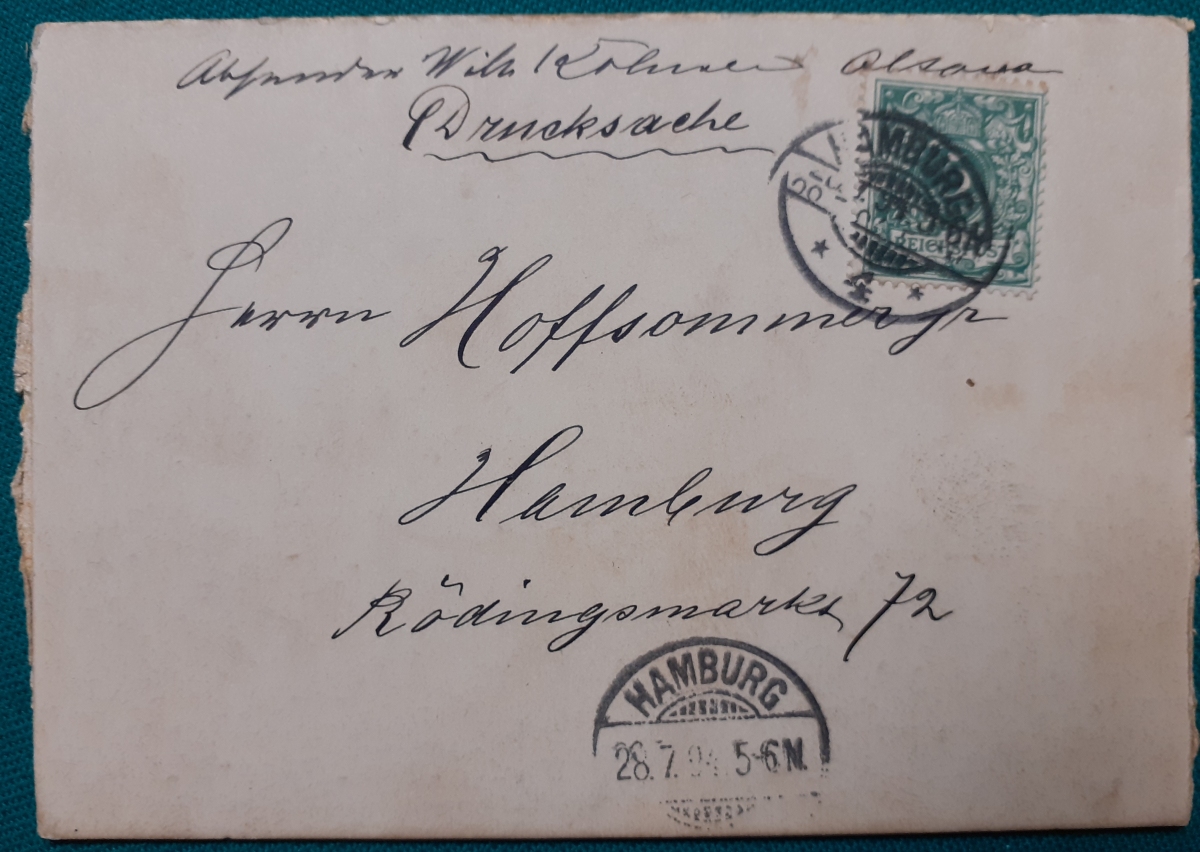 Absender Wilh Köhnsen Altona
Drucksache
HAMBURG
4
REICHSPOST
Herrn Hoffsommer jr
Hamburg
Rödingsmarkt 72
HAMBURG
28.7.94. 5-6N.